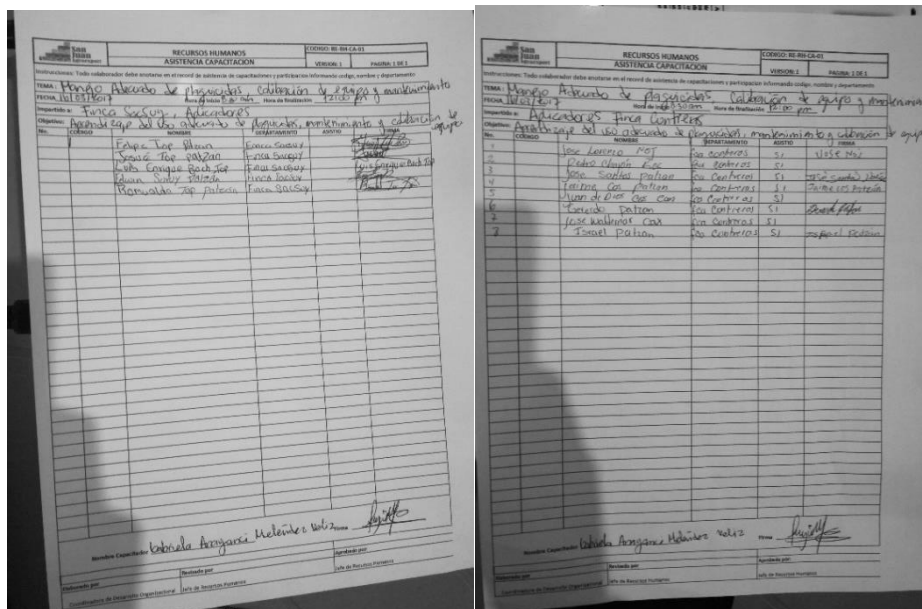 San Juan
RECURSOS HUMANOS
ASISTENCIA CAPACITACION
CODIGO: RE-RH-CA-01
VERSION: 1 PAGINA: 1 DE 1
Instrucciones: Todo colaborador debe anotarse en el record de asistencia de capacitaciones y participacion informando codigo, nombre y departamento
TEMA: Manejo Adecuado de plaguicidas, calibración de equipo y mantenimiento
FECHA Hora de inicio Hora de finalización 12:00 pm
Impartido a: Finca SacSuy, Aplicadores
Objetivo: Aprendizaje del uso adecuado de plaguicidas, mantenimiento y calibración de equipo
No. CODIGO NOMBRE DEPARTAMENTO ASISTIO FIRMA
Felipe Top Finca SacSuy
Top Patzan Finca SacSuy
Luis Enrique Boch Top Finca SacSuy Luis Enrique Boch Top
Finca SacSuy
Romualdo Top Finca SacSuy
Nombre Capacitador Meléndez Firma
Elaborado por Revisado por Aprobado por
Coordinadora de Desarrollo Organizacional Jefe de Recursos Humanos
San Juan
RECURSOS HUMANOS
ASISTENCIA CAPACITACION
CODIGO: RE-RH-CA-01
VERSION: 1 PAGINA: 1 DE 1
Instrucciones: Todo colaborador debe anotarse en el record de asistencia de capacitaciones y participacion informando codigo, nombre y departamento
TEMA: Manejo Adecuado de plaguicidas Calibración de equipo y mantenimiento
FECHA Hora de inicio Hora de finalización 12:00 pm
Impartido a: Aplicadores Finca Contreras
Objetivo: Aprendizaje del uso adecuado de plaguicidas, mantenimiento y calibración de equipo
No. CODIGO NOMBRE DEPARTAMENTO ASISTIO FIRMA
1 Jose Lorenzo Fca Contreras SI
2 Pedro Fca Contreras SI
3 Jose Santos Patzan Fca Contreras SI
4 Jaime Cos Patzan Fca Contreras SI Jaime Cos Patzán
5 Juan de Dios Cos Can Fca Contreras SI
6 Gerardo Patzan Fca Contreras SI
7 Jose Waldemar Fca Contreras SI
Israel Patzan Fca Contreras SI Israel Patzán
Nombre Capacitador Meléndez Firma
Elaborado por Revisado por Aprobado por
Coordinadora de Desarrollo Organizacional Jefe de Recursos Humanos